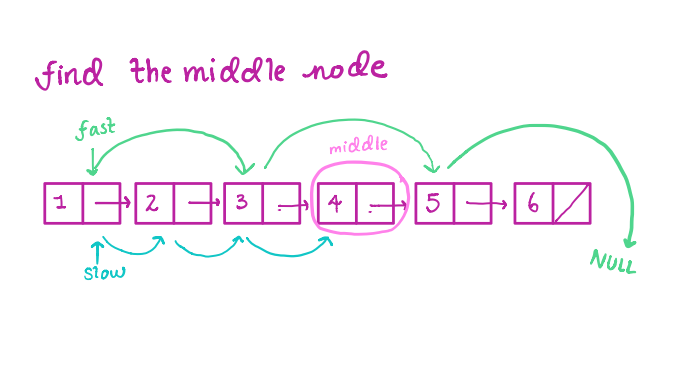 find the middle node
fast
middle
1 2 3 4 5 6
slow
NULL